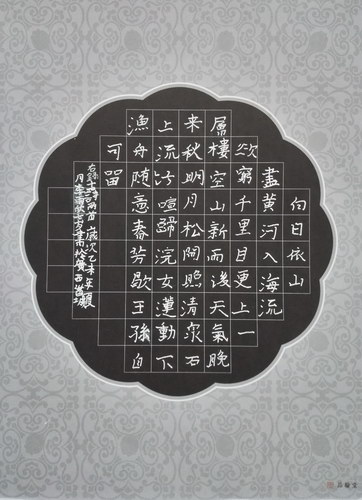 白日依山
盡黄河入海流
欲窮千里目更上一
層樓空山新雨後天氣晚
来秋明月松間照清泉石
上流竹喧歸浣女蓮動下
漁舟随意春芳歇王孫自
可留
歲次乙未